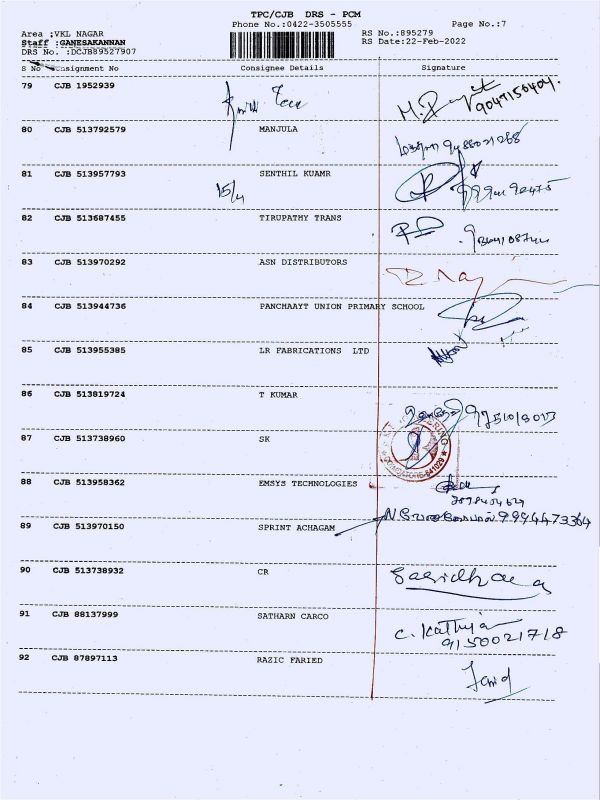 TPC/CJB DRS - PCM
Phone No.:0422-3505555
Page No.:7
Area ;VKL NAGAR
RS No.:895279
Staff :GANESAKANNAN
RS Date:22-Feb-2022
DRS No. :DCJB89527907
S No Consignment No Consignee Details Signature
79 CJB 1952939
9047150404.
80 CJB 513792579 MANJULA
9488021268
81 CJB 513957793 SENTHIL KUAMR
15/4
82 CJB 513687455 TIRUPATHY TRANS
83 CJB 513970292 ASN DISTRIBUTORS
84 CJB 513944736 PANCHAAYT UNION PRIMARY SCHOOL
85 CJB 513955385 LR FABRICATIONS LTD
86 CJB 513819724 T KUMAR
87 CJB 513738960 SK
COIMBATORE-641029
88 CJB 513958362 EMSYS TECHNOLOGIES
89 CJB 513970150 SPRINT ACHAGAM
9994473364
90 CJB 513738932 CR
91 CJB 88137999 SATHARN CARCO
C. Kathija
9150021718
92 CJB 87897113 RAZIC FARIED
Farid